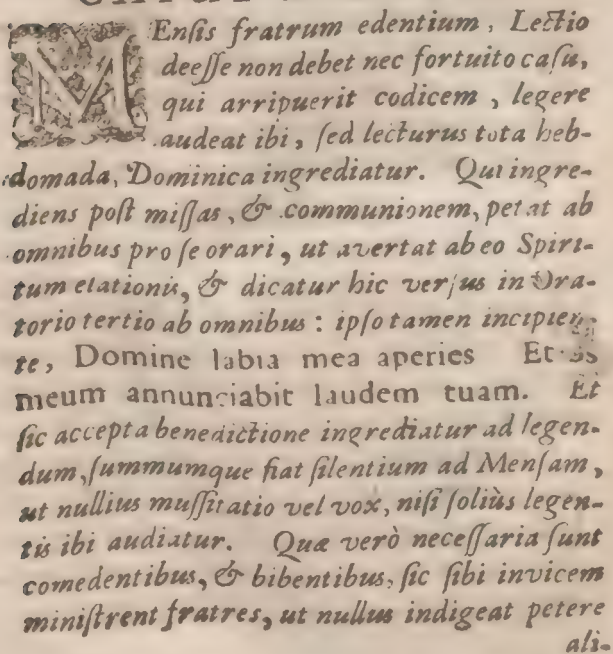 MEnſis fratrum edentium, Lectio
deeſſe non debet nec fortuito caſu,
qui arripuerit codicem, legere
audeat ibi, ſed lecturus tota heb-
domada, Dominica ingrediatur. Qui ingre-
diens poſt miſſas, & communionem, petat ab
omnibus pro ſe orari, ut avertat ab eo Spiri-
tum elationis, & dicatur hic verſus in Ora-
torio tertio ab omnibus: ipſo tamen incipien-
te, Domine labia mea aperies Et os
meum annunciabit laudem tuam. Et
ſic accepta benedictione ingrediatur ad legen-
dum, ſummumque fiat ſilentium ad Menſam,
ut nullius muſſitatio vel vox, niſi ſoliùs legen-
tis ibi audiatur. Quæ verò neceſſaria ſunt
comedentibus, & bibentibus, ſic ſibi invicem
miniſtrent fratres, ut nullus indigeat petere
ali-